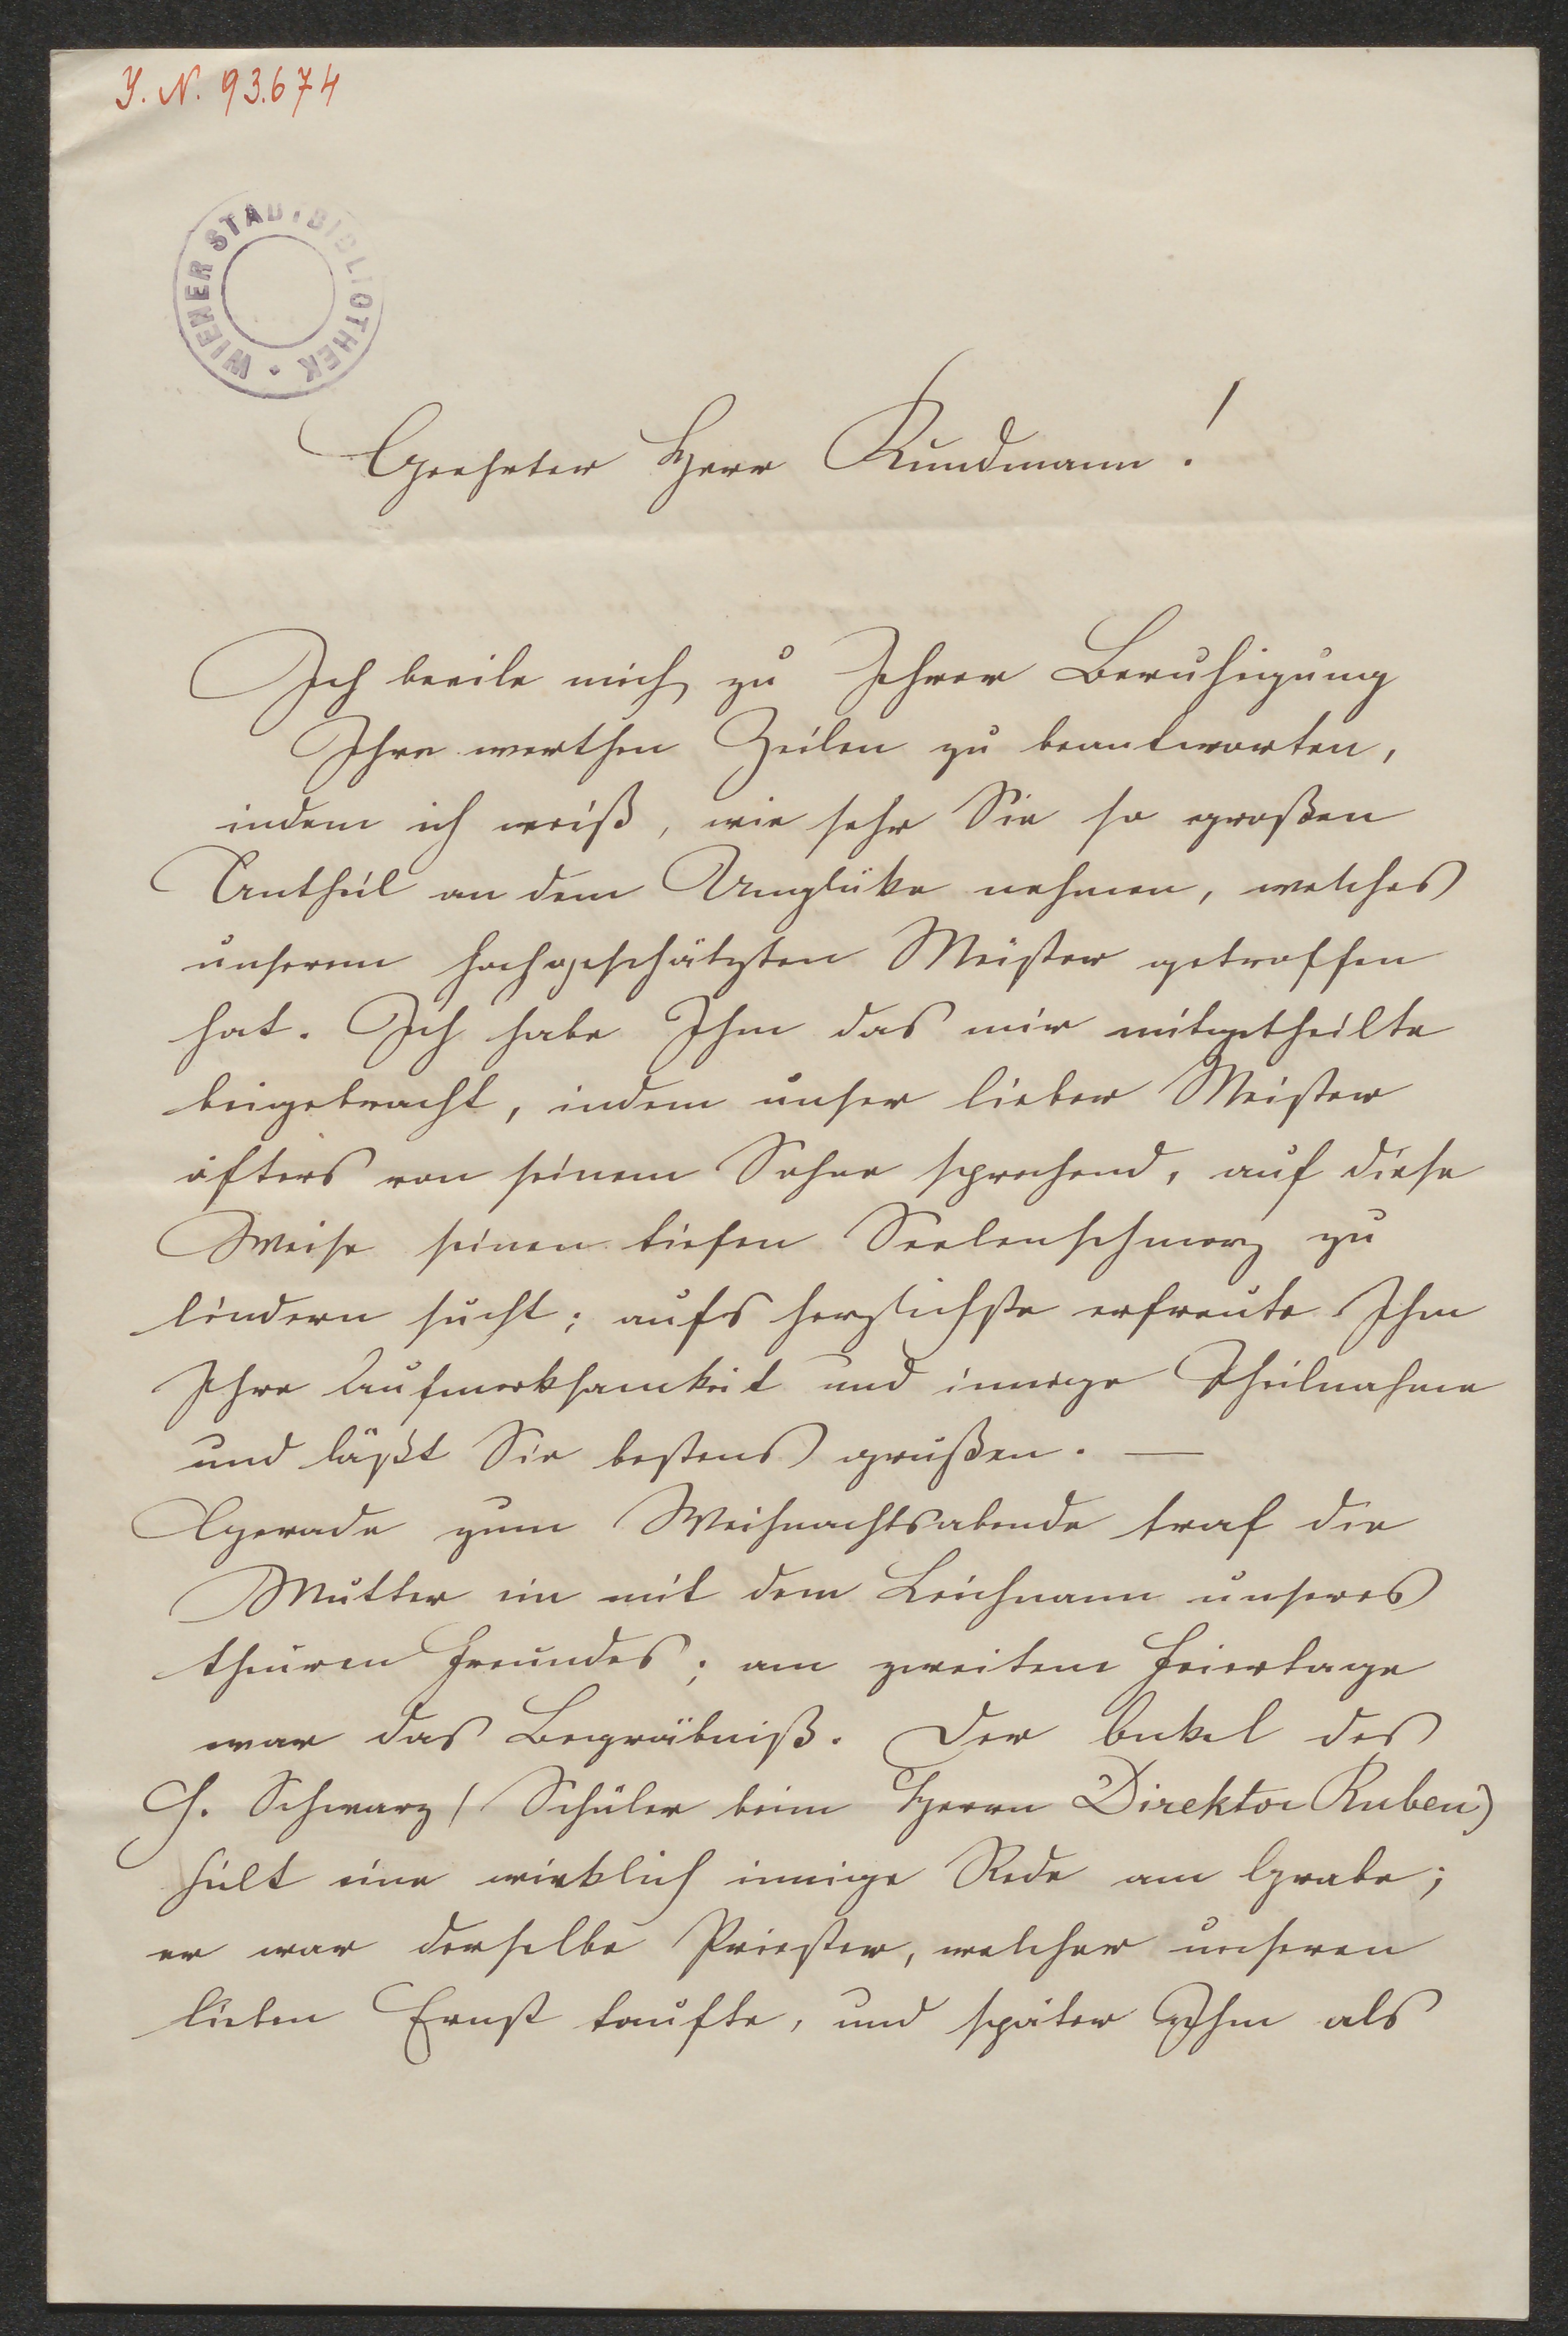 J. N. 93.674
WIENER STADTBIBLIOTHEK
Geehrter Herr Kundmann!
Ich beeile mich zu Ihrer Beruhigung
Ihre werthen Zeilen zu beantworten,
indem ich weiß, wie sehr Sie so großen
Antheil an dem Unglüke nehmen, welches
unserem hochgeschätzten Meister getroffen
hat. Ich habe Ihm das mir mitgetheilte
beigebracht, indem unser lieber Meister
öfters von seinem Sohne sprechend, auf diese
Weise seinen tiefen Seelenschmerz zu
lindern sucht; aufs herzlichste erfreute Ihm
Ihre Aufmerksamkeit und innige Theilnahme
und läßt Sie bestens grüßen. —
Gerade zum Weihnachtsabende traf die
Mutter ein mit dem Leichnam unseres
theuren Freundes; am zweiten Feiertage
war das Begräbniß. Der Onkel des
H. Schwarz (Schüler beim Herrn Direktor Ruben)
hielt eine wirklich innige Rede am Grabe;
er war derselbe Priester, welcher unseren
lieben Ernst taufte, und später Ihm als